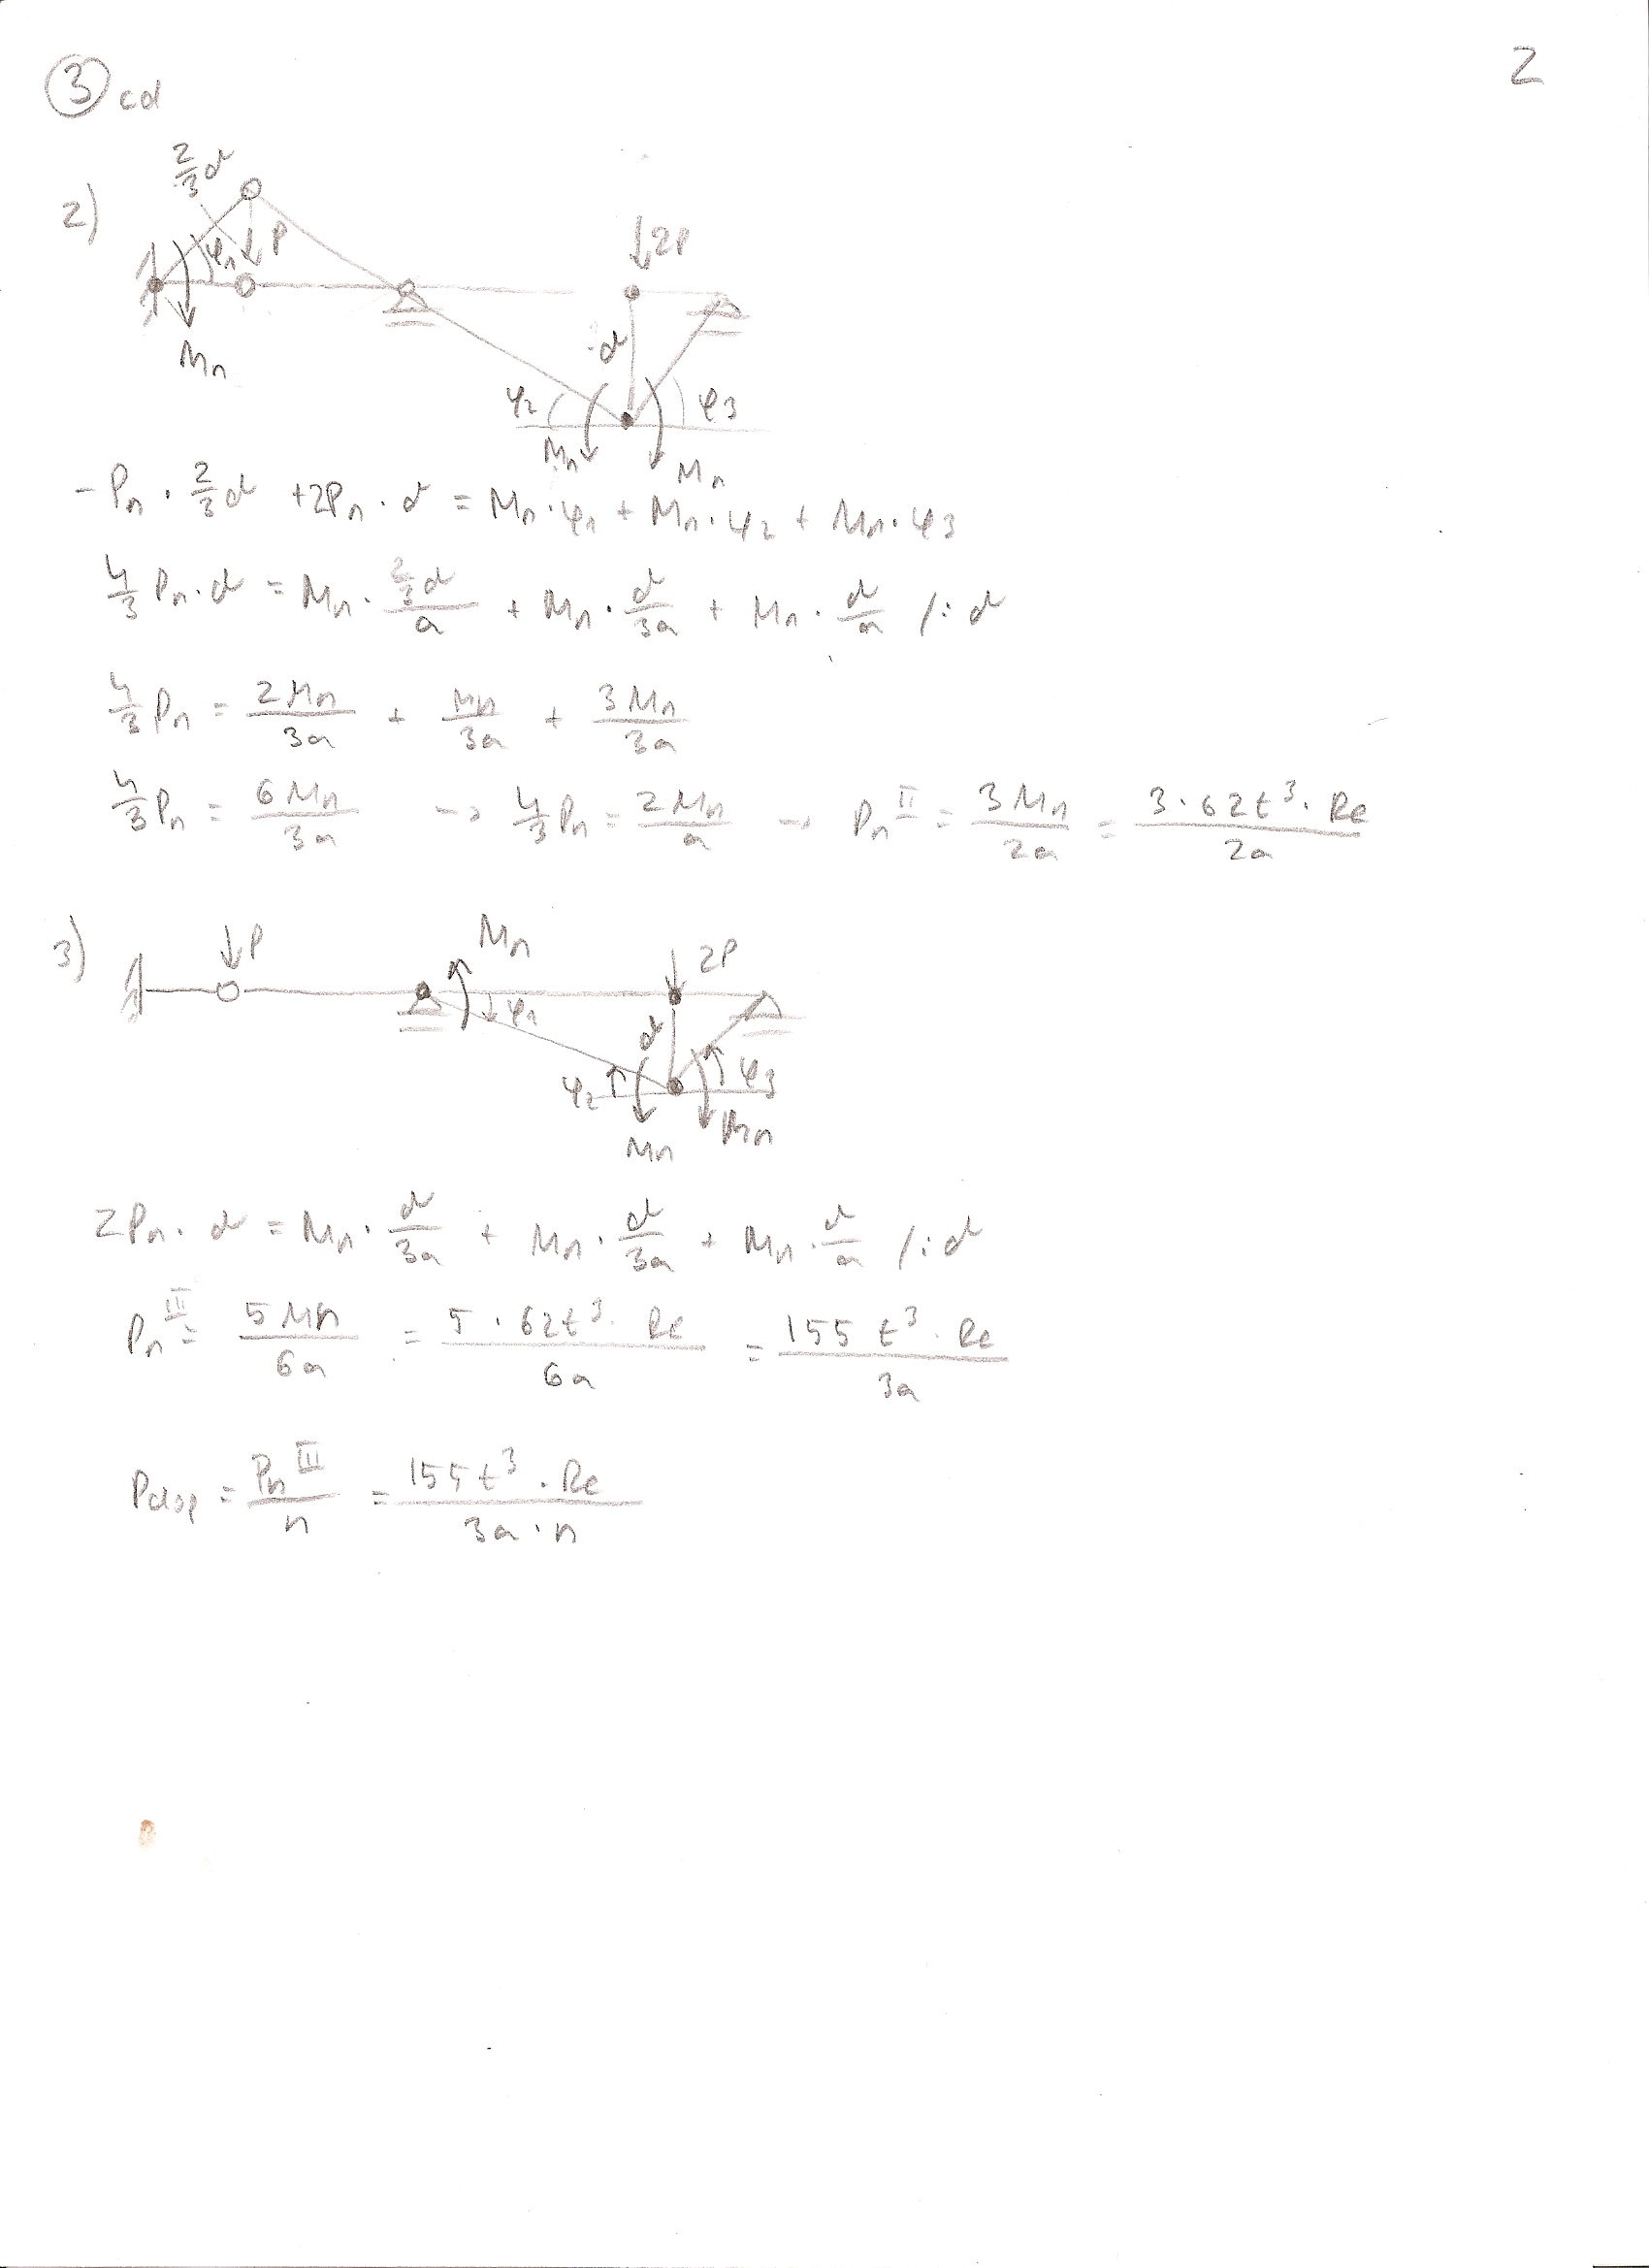 ③ cd 2
2)
2/3 d
φ₁ ↓P
↓2P
Mn
d
φ₂ φ₃
Mn Mn
-Pn · 2/3 d + 2Pn · d = Mn · φ₁ + Mn · φ₂ + Mn · φ₃
4/3 Pn · d = Mn · (2/3 d)/a + Mn · d/3a + Mn · d/a /: d
4/3 Pn = 2Mn/3a + Mn/3a + 3Mn/3a
4/3 Pn = 6Mn/3a → 4/3 Pn = 2Mn/a → Pn^II = 3Mn/2a = 3·62t³·Re/2a
3)
↓P Mn ↓2P
φ₁
d
φ₂ φ₃
Mn Mn
2Pn · d = Mn · d/3a + Mn · d/3a + Mn · d/a /: d
Pn^III = 5Mn/6a = 5·62t³·Re/6a = 155t³·Re/3a
Pdop = Pn^III/n = 155t³·Re/3a·n